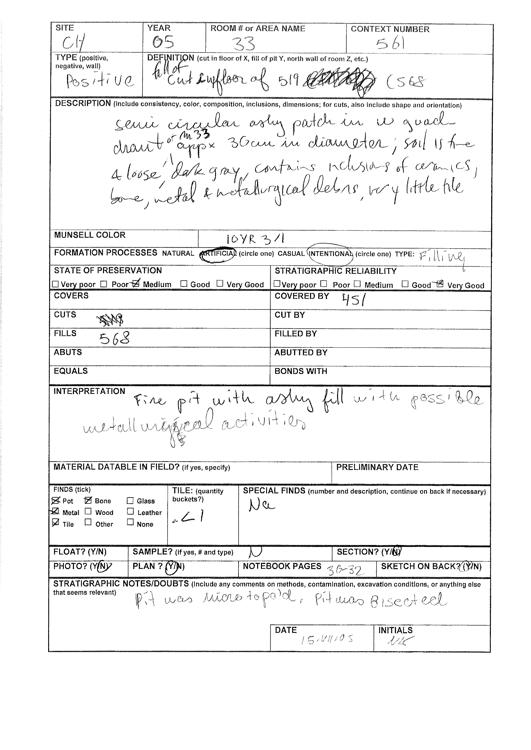 SITE YEAR ROOM # or AREA NAME CONTEXT NUMBER
CH 05 33 561
TYPE (positive, negative, wall) DEFINITION (cut in floor of X, fill of pit Y, north wall of room Z, etc.)
Positive fill of cut in floor of 519 (568
DESCRIPTION (include consistency, color, composition, inclusions, dimensions; for cuts, also include shape and orientation)
semi circular ashy patch in w quad
drant of m33 appx 30cm in diameter; soil is fine
& loose, dark gray, contains inclusions of ceramics,
bone, metal & metallurgical debris, very little tile
MUNSELL COLOR 10YR 3/1
FORMATION PROCESSES NATURAL ARTIFICIAL (circle one) CASUAL INTENTIONAL (circle one) TYPE: Filling
STATE OF PRESERVATION STRATIGRAPHIC RELIABILITY
Very poor Poor Medium Good Very Good Very poor Poor Medium Good Very Good
COVERS COVERED BY 451
CUTS CUT BY
FILLS 568 FILLED BY
ABUTS ABUTTED BY
EQUALS BONDS WITH
INTERPRETATION Fire pit with ashy fill with possible
metallurgical activities
MATERIAL DATABLE IN FIELD? (if yes, specify) PRELIMINARY DATE
FINDS (tick) TILE: (quantity buckets?) SPECIAL FINDS (number and description, continue on back if necessary)
Pot Bone Glass <1 Na
Metal Wood Leather
Tile Other None
FLOAT? (Y/N) SAMPLE? (if yes, # and type) N SECTION? (Y/N)
PHOTO? (Y/N) PLAN? (Y/N) NOTEBOOK PAGES 30-32 SKETCH ON BACK? (Y/N)
STRATIGRAPHIC NOTES/DOUBTS (include any comments on methods, contamination, excavation conditions, or anything else
that seems relevant) Pit was microtopo'd, Pit was Bisected
DATE INITIALS
15.VII.05